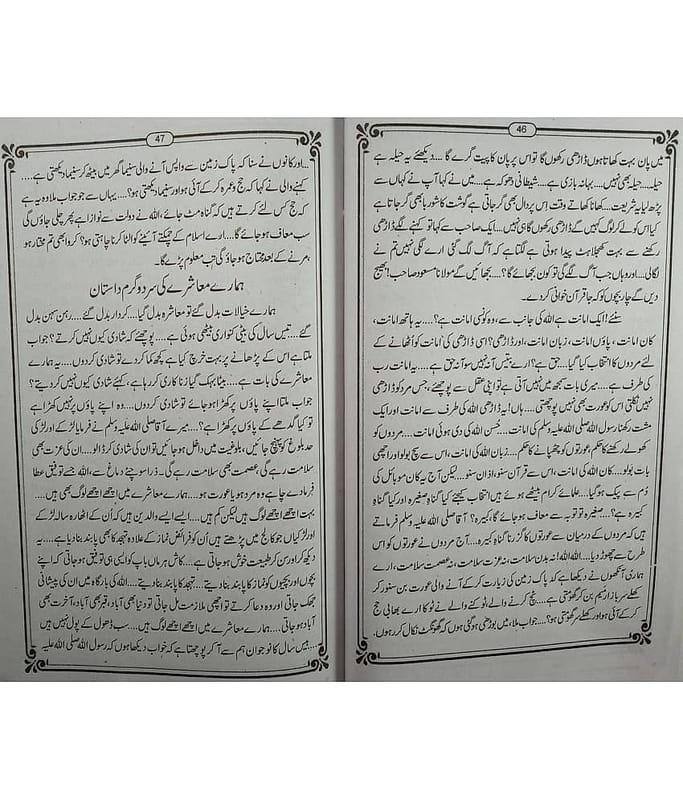 46
میں پان بہت کھاتا ہوں ڈاڑھی رکھوں گا تو اس پر پان کا پیت گرے گا....دیکھئے یہ حیلہ ہے
حیلہ....حیلہ بھی نہیں....بہانہ بازی ہے....شیطانی دھوکہ ہے....میں نے کہا آپ نے کہاں سے
پڑھ لیا یہ شریعت....کھانا کھاتے وقت اس پر دال بھی گر جاتی ہے گوشت کا شوربا بھی گر جاتا ہے
کیا اس کو لے کر لوگ کہیں گے ڈاڑھی رکھوں گا ہی نہیں....ایک صاحب سے کہا تو کہنے لگے ڈاڑھی
رکھنے سے بہت کھجلاہٹ پیدا ہوتی ہے لگتا ہے کہ آگ لگ گئی ارے لگی نہیں تم نے
لگالی....اور وہاں جب آگ لگے گی تو کون بجھائے گا؟....بجھائیں گے مولانا مسعود صاحب! بھیج
دیں گے چار بچوں کو کہ جا قرآن خوانی کر دے۔
سنئے! ایک امانت ہے اللہ کی جانب سے، وہ کونسی امانت ہے؟....یہ ہاتھ امانت،
کان امانت، پاؤں امانت، زبان امانت، اور ڈاڑھی؟ اسی ڈاڑھی کی امانت کو اُٹھانے کے
لئے مردوں کا انتخاب کیا گیا....حق ہے؟ ارے بتیس آنہ نہیں سو آنہ حق ہے....یہ امانت رب
کی طرف ہے....میری بات سمجھ میں نہیں آتی ہے تو اپنی عقل سے پوچھئے، جس مرد کو ڈاڑھی
نہیں نکلتی اس کو عورت بھی نہیں پوچھتی....ہاں! یہ ڈاڑھی اللہ کی طرف سے امانت اور ایک
مشت رکھنا رسول اللہ صلی اللہ علیہ وسلم کی امانت....حُسن اللہ کی دی ہوئی امانت....مردوں کو
کھولے رکھنے کا حکم، عورتوں کو چھپانے کا حکم....زبان اللہ کی امانت، اس سے سچ بولو اور اچھی
بات بولو....کان اللہ کی امانت، اس سے قرآن سنو، اذان سنو....لیکن آج یہ کان موبائل کی
دُم سے پیک ہو گیا....علمائے کرام بیٹھے ہوئے ہیں انتخاب کیجئے کیا گناہِ صغیرہ اور کیا گناہِ
کبیرہ ہے؟....صغیرہ تو توبہ سے معاف ہو جائے گا، کبیرہ؟ آقا صلی اللہ علیہ وسلم فرماتے
ہیں کہ مردوں کے درمیان سے عورتوں کا گزرنا گناہِ کبیرہ....آج مردوں نے عورتوں کو اس
طرح سے چھوڑ دیا....اللہ اللہ! نہ بدن سلامت، نہ عزت سلامت، نہ عصمت سلامت، ارے
ہماری آنکھوں نے دیکھا ہے کہ پاک زمین کی زیارت کر کے آنے والی عورت بن سنور کر
کھلے سر بازار میں بن کر گھومتی ہے....حج کرنے والے، ٹوکنے والے نے ٹوکا ارے بھابی حج
کر کے آئی ہو اور کھلے سر گھومتی ہو؟....جواب ملا، میں بوڑھی ہو گئی ہوں کہ گھونگٹ نکال کر رہوں،
47
...اور کانوں نے سنا کہ پاک زمین سے واپس آنے والی سنیما گھر میں بیٹھ کر سنیما دیکھتی ہے....
کہنے والی نے کہا کہ حج و عمرہ کر کے آئی ہو اور سنیما دیکھتی ہو؟....یہاں سے جو جواب ملا وہ یہ ہے
کہ حج کس لئے کرتے ہیں کہ گناہ مٹ جائے، اللہ نے دولت سے نوازا ہے پھر چلی جاؤں گی
سب معاف ہو جائے گا....ارے اسلام کے چمکتے آئینے کو الٹا کرنا چاہتی ہو؟ کرو ابھی تم مختار ہو
،مرنے کے بعد محتاج ہو جاؤ گی تب معلوم پڑے گا۔
ہمارے معاشرے کی سرد و گرم داستان
ہمارے خیالات بدل گئے تو معاشرہ بدل گیا....کردار بدل گئے....رہن سہن بدل
گئے....تیس سال کی بیٹی کنواری بیٹھی ہوئی ہے....پوچھئے کہ شادی کیوں نہیں کرتے؟ جواب
ملتا ہے اس کے پڑھانے پر بہت خرچ کیا ہے کچھ کما کر دے تو شادی کر دوں....یہ ہمارے
معاشرے کی بات ہے....بیٹا بہک گیا زنا کاری کر رہا ہے، کہئے شادی کیوں نہیں کر دیتے؟
جواب ملتا اپنے پاؤں پر کھڑا ہو جائے تو شادی کر دوں....وہ اپنے پاؤں پر نہیں کھڑا ہے
تو کیا گدھے کے پاؤں پر کھڑا ہے؟....میرے آقا صلی اللہ علیہ وسلم نے فرمایا لڑکے اور لڑکی
حد بلوغ کو پہنچ جائیں، بلوغیت میں داخل ہو جائیں تو ان کی شادی کر ڈالو....ان کی عزت بھی
سلامت رہے گی، عصمت بھی سلامت رہے گی۔ ذرا سوچئے دماغ سے، اللہ جسے توفیق عطا
فرما دے چاہے وہ مرد ہو یا عورت ہو....ہمارے معاشرے میں اچھے اچھے لوگ بھی ہیں....
بہت اچھے اچھے لوگ ہیں لیکن کم ہیں....ایسے ایسے والدین ہیں کہ اُن کے اٹھارہ سالہ لڑکے
اور لڑکیاں جو کالج میں پڑھتے ہیں اُن کو فرائض نماز کے علاوہ تہجد کا بھی پابند بنا دیا ہے....یہ
دیکھ کر اور سن کر طبیعت خوش ہو جاتی ہے....کاش ہر ماں باپ کو ایسی ہی توفیق ہو جاتی کہ اپنے
بچوں اور بچیوں کو نماز کا پابند بنا دیتے....تہجد کا پابند بنا دیتے....اللہ کی بارگاہ میں ان کی پیشانی
جھک جاتی اور وہ دعا کرتے تو اچھی ملازمت مل جاتی تو دنیا بھی آباد، قبر بھی آباد، آخرت بھی
آباد ہو جاتی....ہمارے معاشرے میں اچھے اچھے لوگ ہیں....سب دھول کے پول نہیں ہیں
....بیس سال کا نوجوان ہم سے آ کر پوچھتا ہے کہ خواب دیکھا ہوں کہ رسول اللہ صلی اللہ علیہ